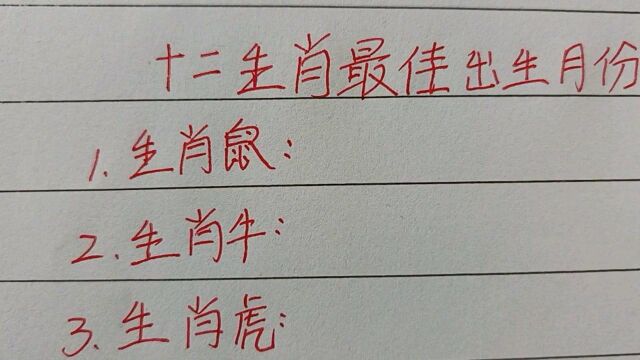 十二生肖最佳出生月份
1.生肖鼠:
2.生肖牛:
3.生肖虎: